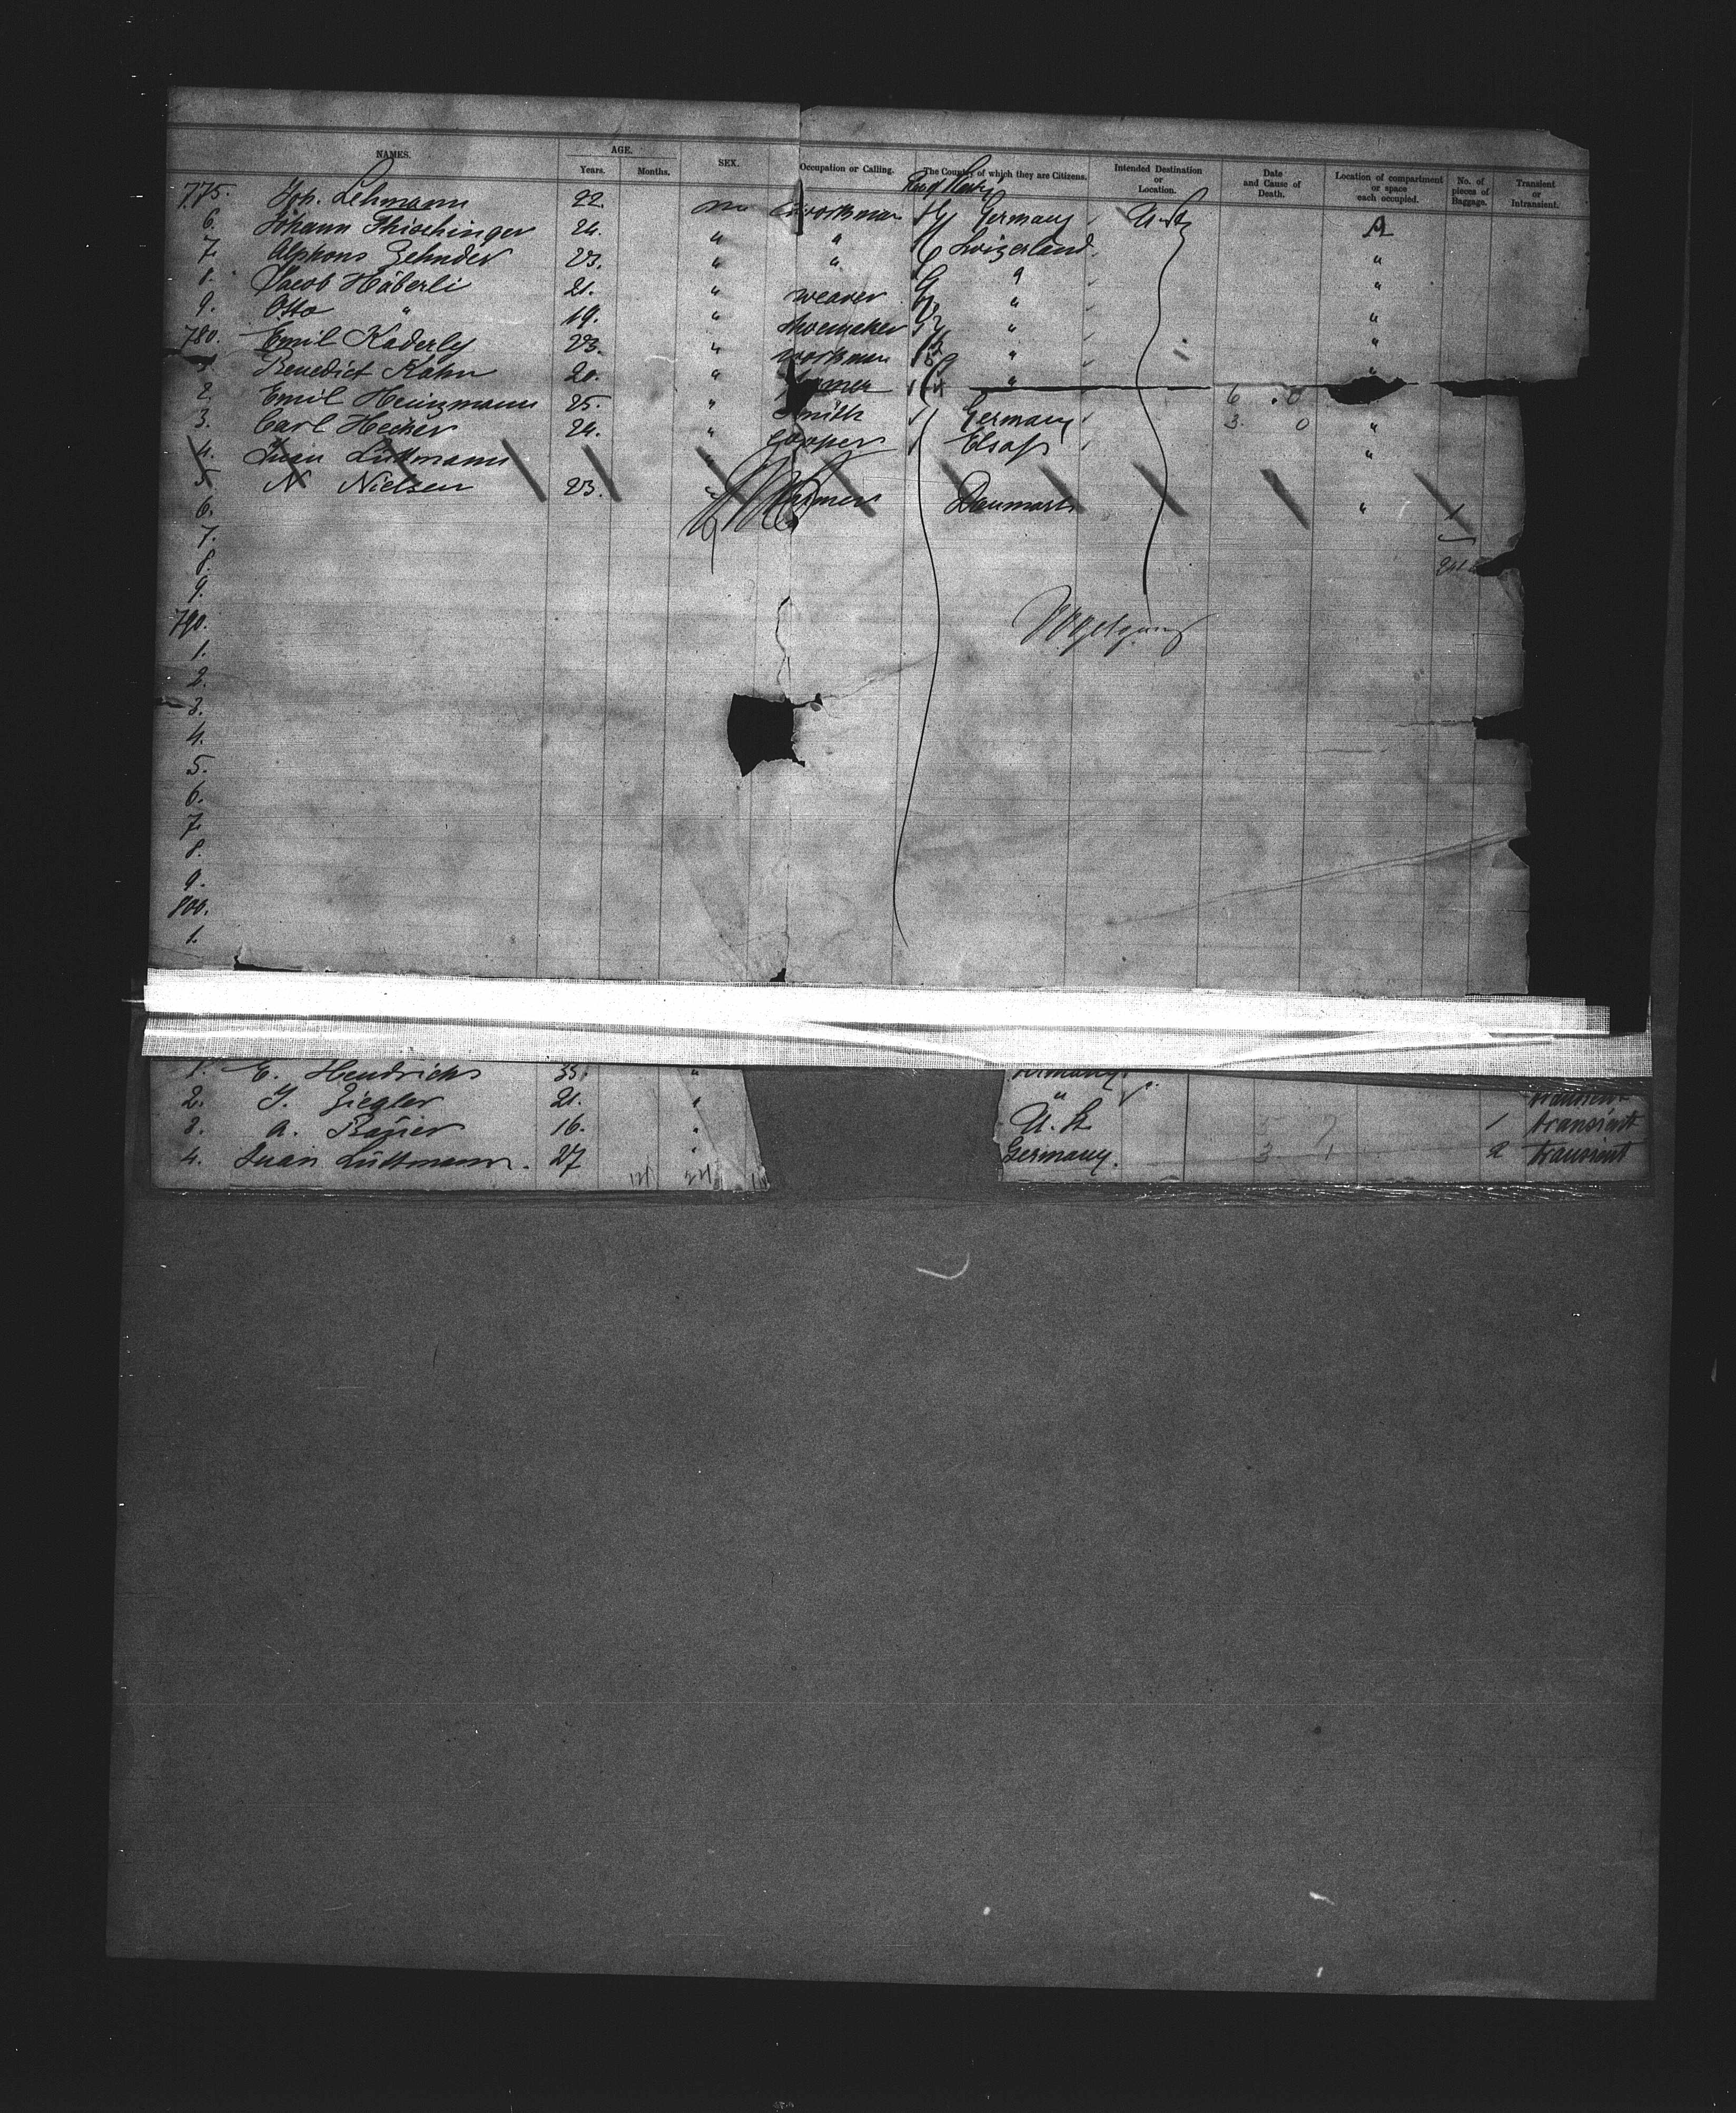 NAMES. AGE. Years. Months. SEX. Occupation or Calling. The Country of which they are Citizens. Intended Destination or Location. Date and Cause of Death. Location of compartment or space each occupied. No. of pieces of Baggage. Transient or Intransient.
775. Joh. Lehmann 22. m workman Germany U. St.
6. Johann Thischinger 24. " " Swizerland "
7. Alphons Zehnder 23. " " " "
8. Jacob Häberli 21. " weaver " "
9. Otto " 19. " shoemaker " "
780. Emil Kaderly 23. " workman " "
1. Benedict Kahn 20. " "
2. Emil Heinzmann 25. " Smith Germany 6 0
3. Carl Hecker 24. " cooper Elsass 3. 0 "
4. Iwan Lüttmann " "
5. N Nielsen 23. " Danmark "
6.
7.
8.
9.
790.
1.
2.
3.
4.
5.
6.
7.
8.
9.
800.
1.
1. E. Hendrichs 35. "
2. J. Ziegler 21. " " transient
3. A. Baüer 16. " U. St. 1 transient
4. Iwan Lüttmann. 27 " Germany. 3 1 2 transient